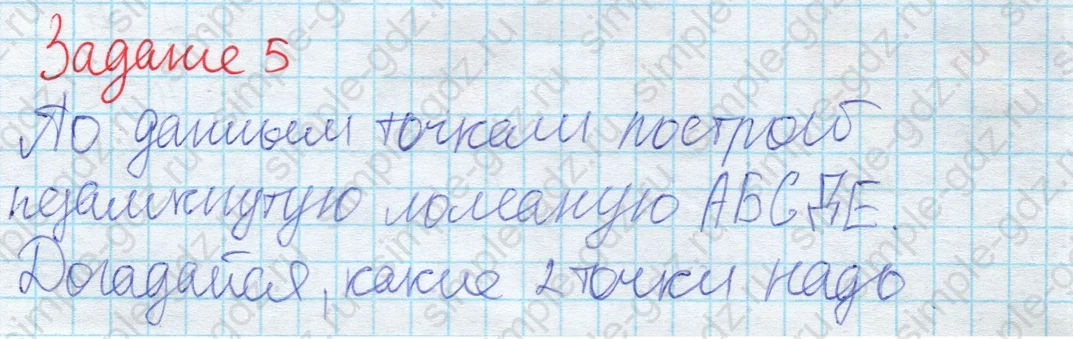 Задание 5
По данным точкам построй
незамкнутую ломаную АБСДЕ.
Догадайся, какие 2 точки надо